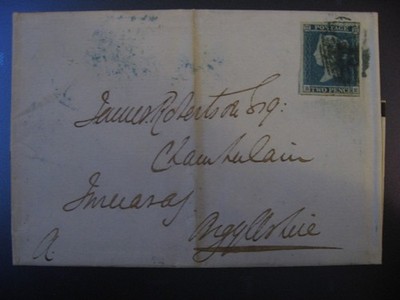 POSTAGE
TWO PENCE
James Robertson Esq:
Chamberlain
Inveraray
Argyllshire
A.